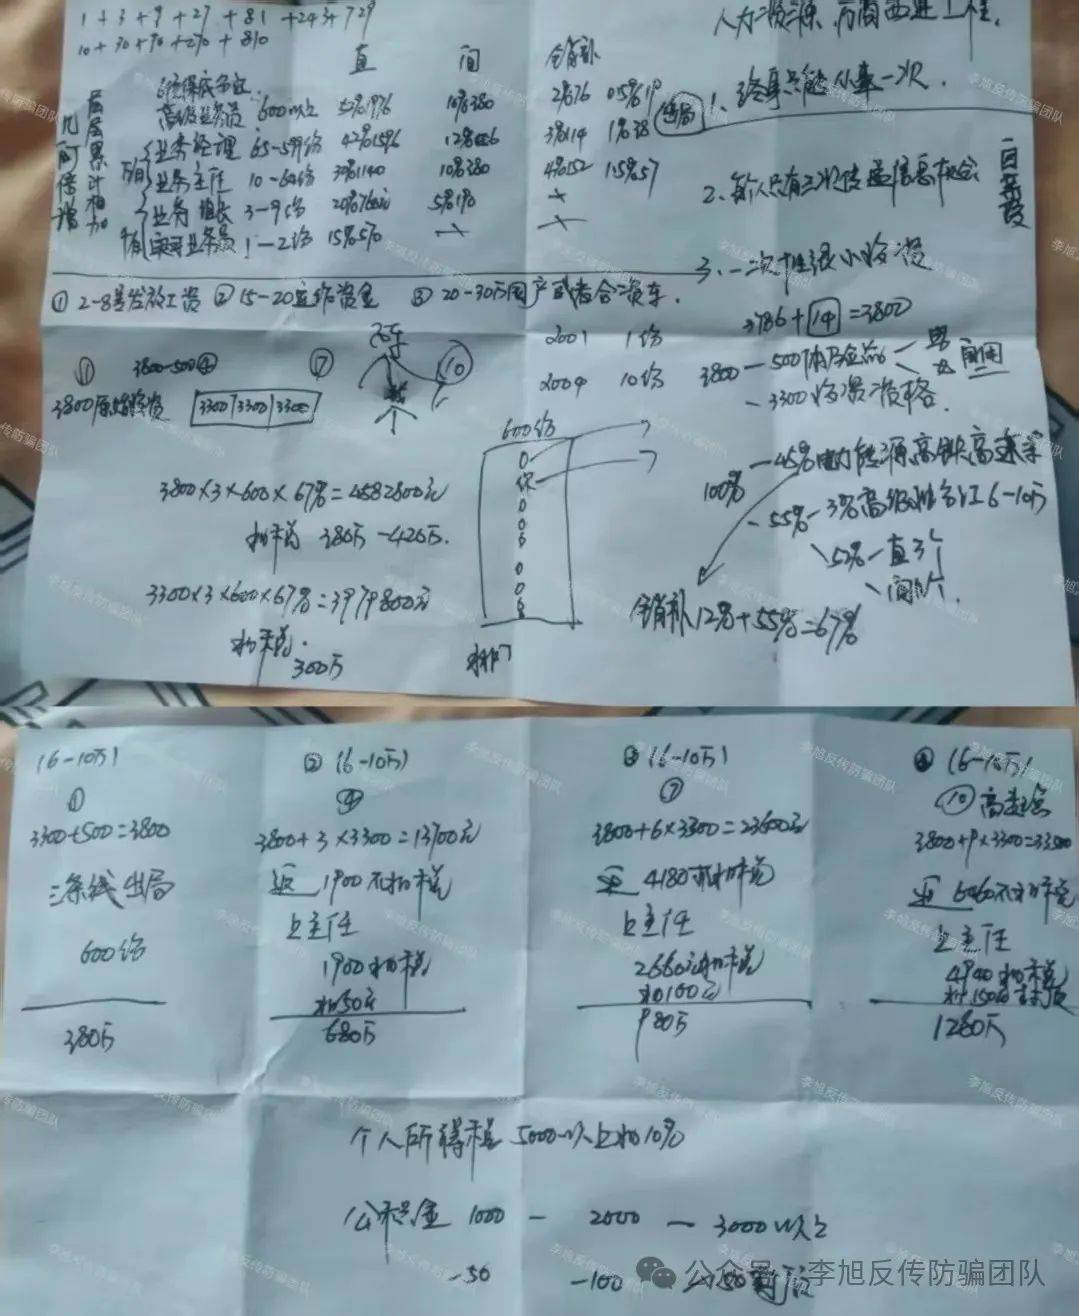 1 + 3 + 9 + 27 + 81 + 243 + 729
10 + 30 + 90 + 270 + 810
人力资源 万商西进工程.
直 间 全销补
几何倍增
层层累计相加
高级业务员 600以上 52%1976 10%380 2%76 0.5%19
业务经理 65-599份 42%1596 12%456 3%114 1%38
业务主任 10-64份 30%1140 10%380 4%152 1.5%57
业务组长 3-9份 20%760元 5%190 ×
实习业务员 1-2份 15%570 × ×
出局
1、终身只能从事一次.
2、每人只有三次传递信息机会
3、一次性很小投资
① 2-8号发放工资 ② 15-20运作资金 ③ 20-30万国产或者合资车.
3786+14=3800
3800-500 ④ ⑦ ⑩
3800原始投资 3300 3300 3300
2001 1份
2004 10份
3800-500
-3300投资资格.
600份
3800×3×600×67%=4582800元
扣税 380万-420万.
3300×3×600×67%=3979800元
扣税.
300万
100%
-45%电力能源高铁高速
-55%-3%高级 6-10万
52%-直3个
间
全销补12%+55%=67%
(6-10万) ② (6-10万) ③ (6-10万) ④ (6-10万)
① ④ ⑦ ⑩
3300+500=3800
三条线出局
600份
380万
3800+3×3300=13700元
返1900不扣税
上主任
1900扣税
扣50元
680万
3800+6×3300=23600元
返4180不扣税
上主任
2660元扣税
扣100元
980万
3800+9×3300=33500
返6460不扣税
上主任
4940扣税
扣150元
1280万
个人所得税 5000以上扣10%
公积金 1000 - 2000 - 3000以上
-50 -100
公众号·李旭反传防骗团队
李旭反传防骗团队